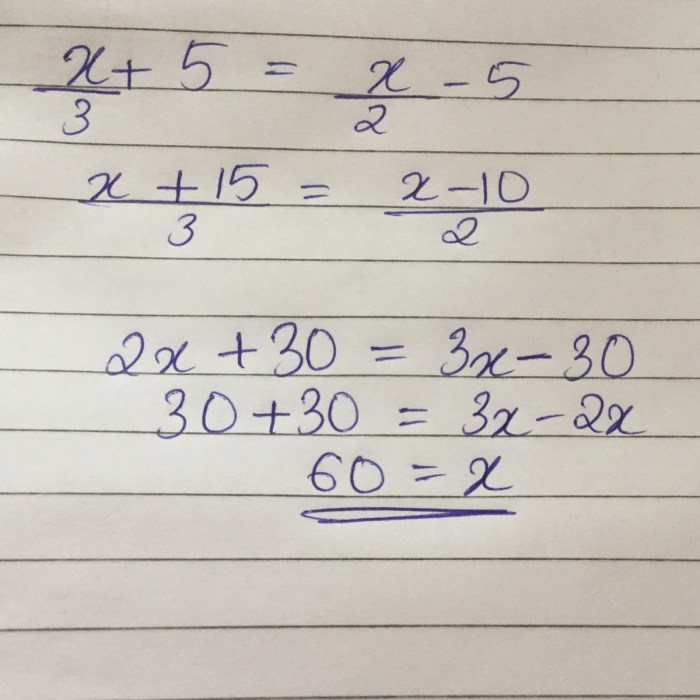 x/3 + 5 = x/2 - 5
(x + 15)/3 = (x - 10)/2
2x + 30 = 3x - 30
30 + 30 = 3x - 2x
60 = x